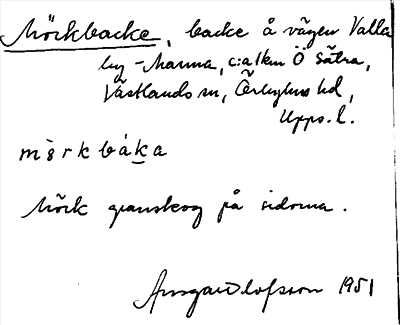 Mörkbacke, backe å vägen Valla
by - Marma, c:a 1 km Ö Sätra,
Västlands sn, Örbyhus hd,
Upps. l.
mö̀rkbáka
Mörk granskog på sidorna.
Ansgar Olofsson 1951